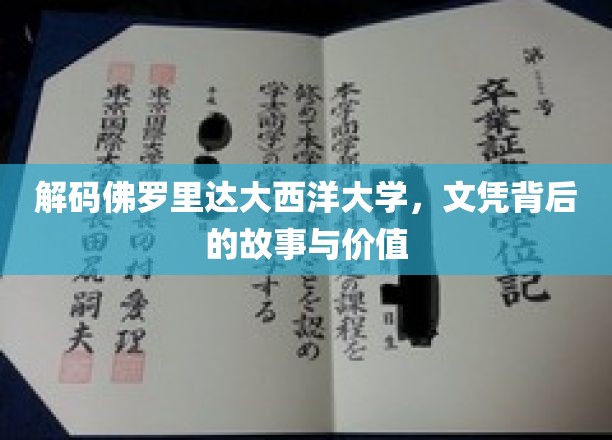 解码佛罗里达大西洋大学，文凭背后
的故事与价值
第 号
卒業証 学位記
本学商学部 定の課程を
修めて本学 ことを認め
学士(商学)の学 する
平成
東京国際大学商 田村愛理
東京国際大 長田尻嗣夫